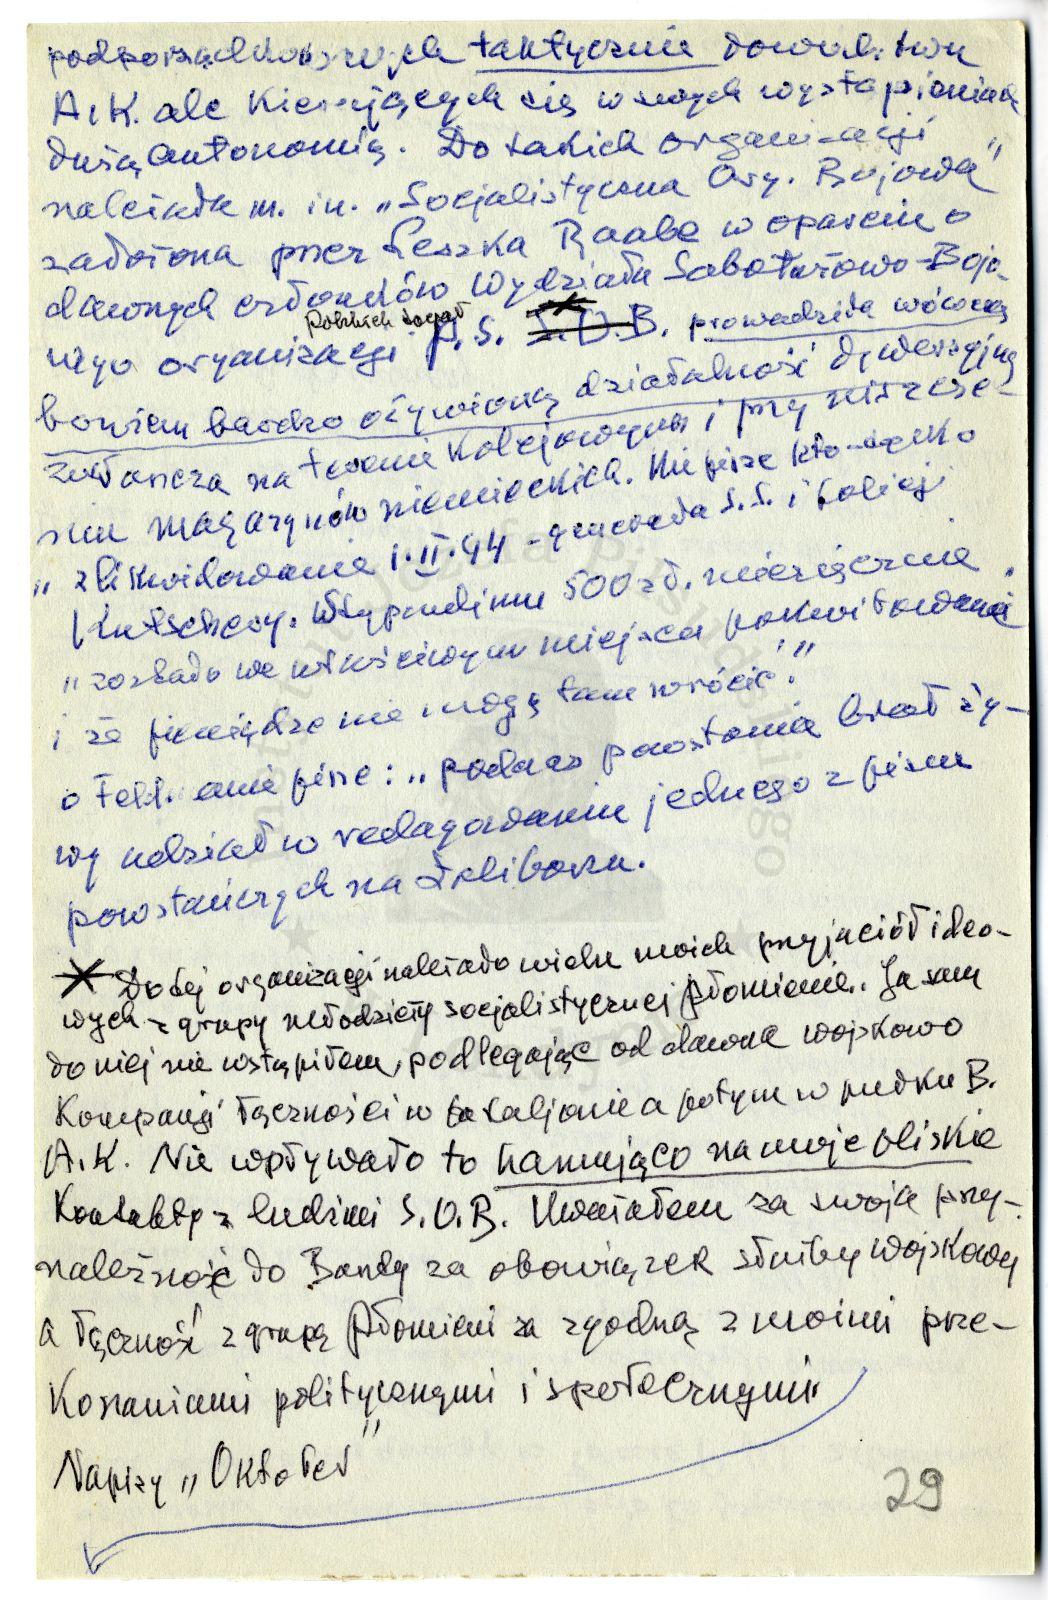 podporządkowanych taktycznie dowództwu
A.K. ale kierujących się w swych wystąpieniach
dużą autonomią. Do takich organizacji
należała m. in. „Socjalistyczna Org. Bojowa"
założona przez Leszka Raabe w oparciu o
dawnych członków Wydziału Sabotażowo-Bojo-
wego organizacji Polskich Socjal P.S. S.O.B. prowadziła wówczas
bowiem bardzo ożywioną działalność dywersyjną
zwłaszcza na terenie kolejowym i przy niszcze-
niu magazynów niemieckich. Nie pisze kto
„zlikwidowanie 1.II.44 - generała S.S. i Policji
Kutschery. W stypendium 500 zł. miesięcznie
„zostało we właściwym miejscu pokwitowane
i że pieniądze nie mogą tam wrócić."
o Feld.. anie pisze: „podczas powstania brał ży-
wy udział w redagowaniu jednego z pism
powstańczych na Żoliborzu.
X Do tej organizacji należało wielu moich przyjaciół ideo-
wych z grupy młodzieży socjalistycznej Płomienie.. Ja sam
do niej nie wstąpiłem, podlegając od dawna wojskowo
Kompanji łączności w batalionie a potym w pułku B.
A.K. Nie wpływało to hamująco na moje bliskie
Kontakty z ludźmi S.O.B. Uważałem za swoją przy-
należność do Baszty za obowiązek służby wojskowej
a łączność z grupą Płomieni za zgodną z moimi prze-
konaniami politycznymi i społecznymi
Napisy „Oktober"
29
Instytut Józefa Piłsudskiego